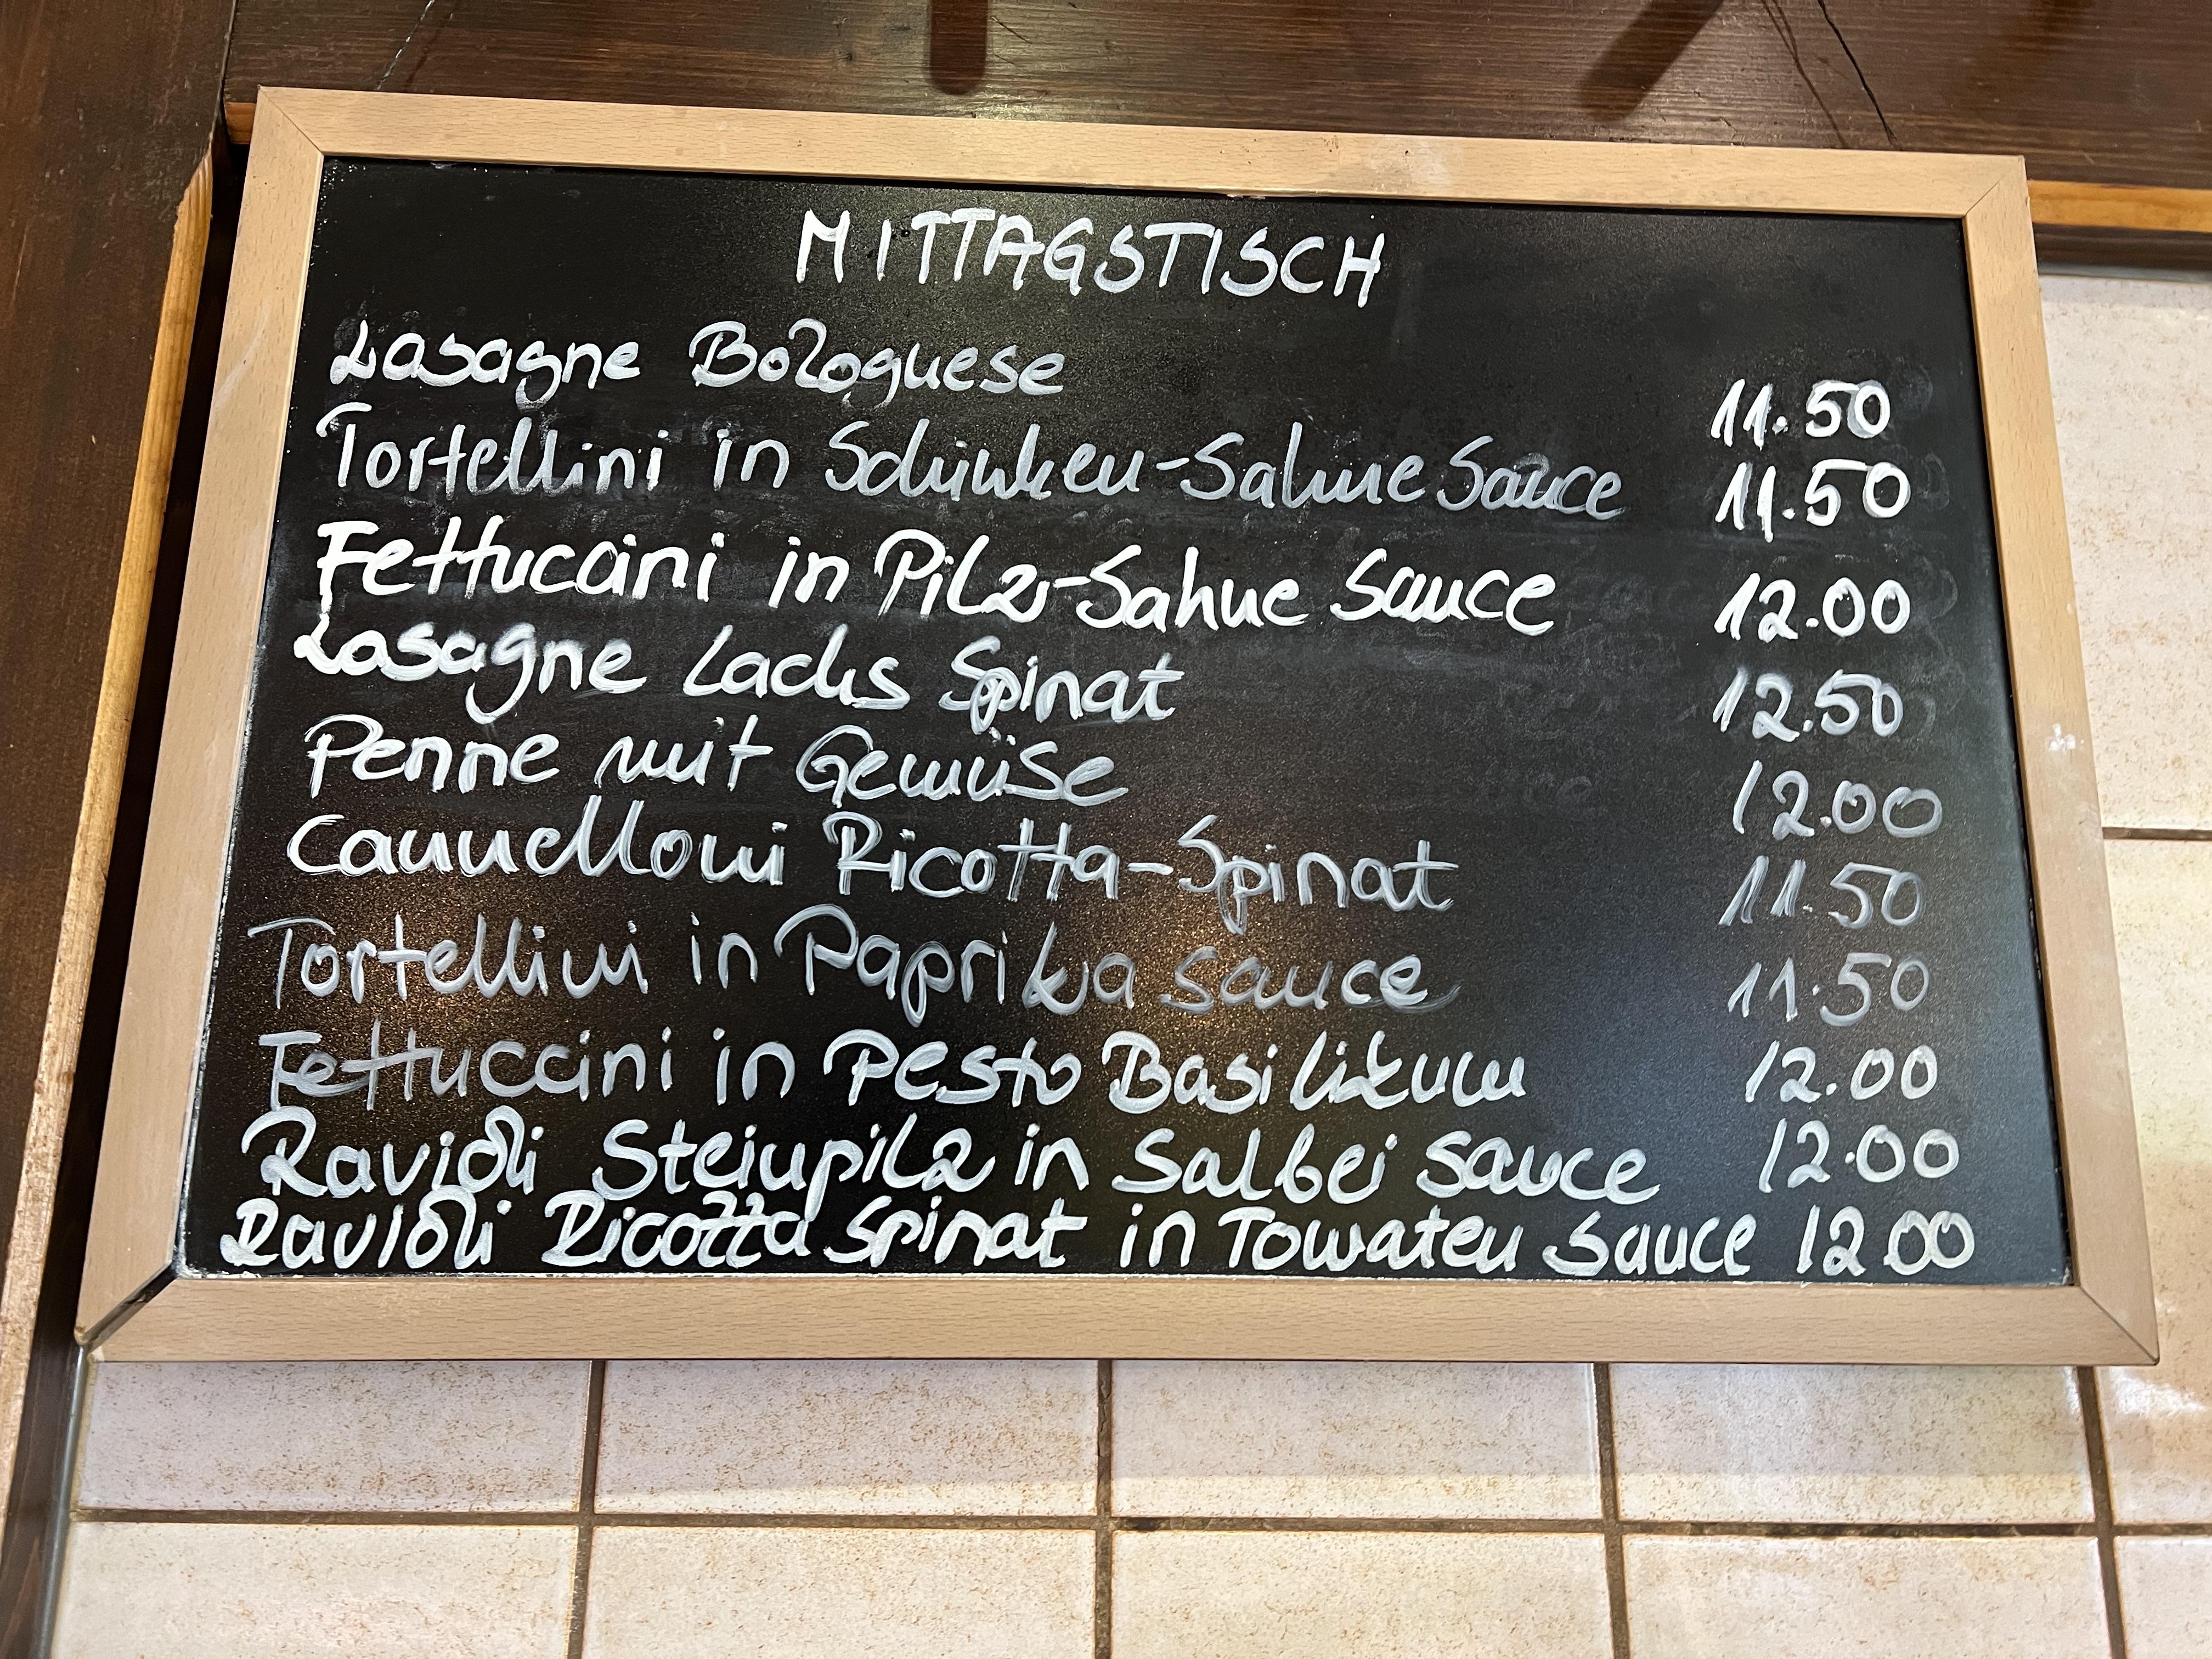 MITTAGSTISCH
Lasagne Bolognese 11.50
Tortellini in Schinken-Sahne Sauce 11.50
Fettuccini in Pilz-Sahne Sauce 12.00
Lasagne Lachs Spinat 12.50
Penne mit Gemüse 12.00
Cannelloni Ricotta-Spinat 11.50
Tortellini in Paprika Sauce 11.50
Fettuccini in Pesto Basilikum 12.00
Ravioli Steinpilz in Salbei Sauce 12.00
Ravioli Ricotta Spinat in Tomaten Sauce 12.00